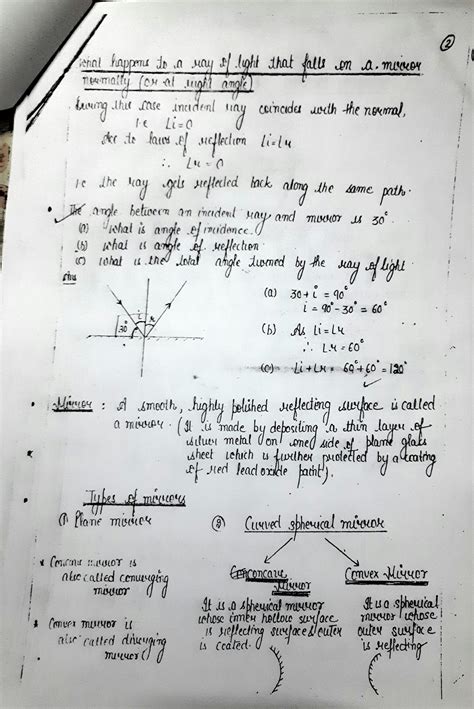 ②
What happens to a ray of light that falls on a mirror
normally (or at right angle)
During this case incident ray coincides with the normal,
i.e Li=0
Acc to laws of reflection Li=Lr
∴ Lr=0
i.e the ray gets reflected back along the same path.
The angle between an incident ray and mirror is 30°
(a) What is angle of incidence.
(b) what is angle of reflection.
(c) what is the total angle turned by the ray of light
i r
30°
(a) 30+i = 90°
i = 90°-30° = 60°
(b) As Li=Lr
∴ Lr=60°
(c) Li+Lr = 60°+60° = 120°
• Mirror : A smooth, highly polished reflecting surface is called
a mirror. (It is made by depositing a thin layer of
silver metal on one side of plane glass
sheet which is further protected by a coating
of red lead oxide paint).
• Types of mirrors
① Plane mirror
② Curved spherical mirror
Concave
Mirror
Convex Mirror
• Concave mirror is
also called converging
mirror
• Convex mirror is
also called diverging
mirror
It is a spherical mirror
whose inner hollow surface
is reflecting surface & outer
is coated.
It is a spherical
mirror whose
outer surface
is reflecting